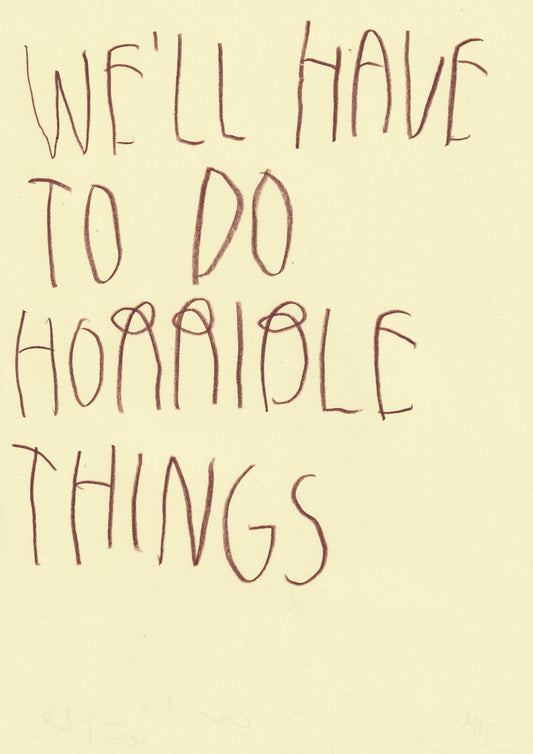 WE'LL HAVE
TO DO
HORRIBLE
THINGS